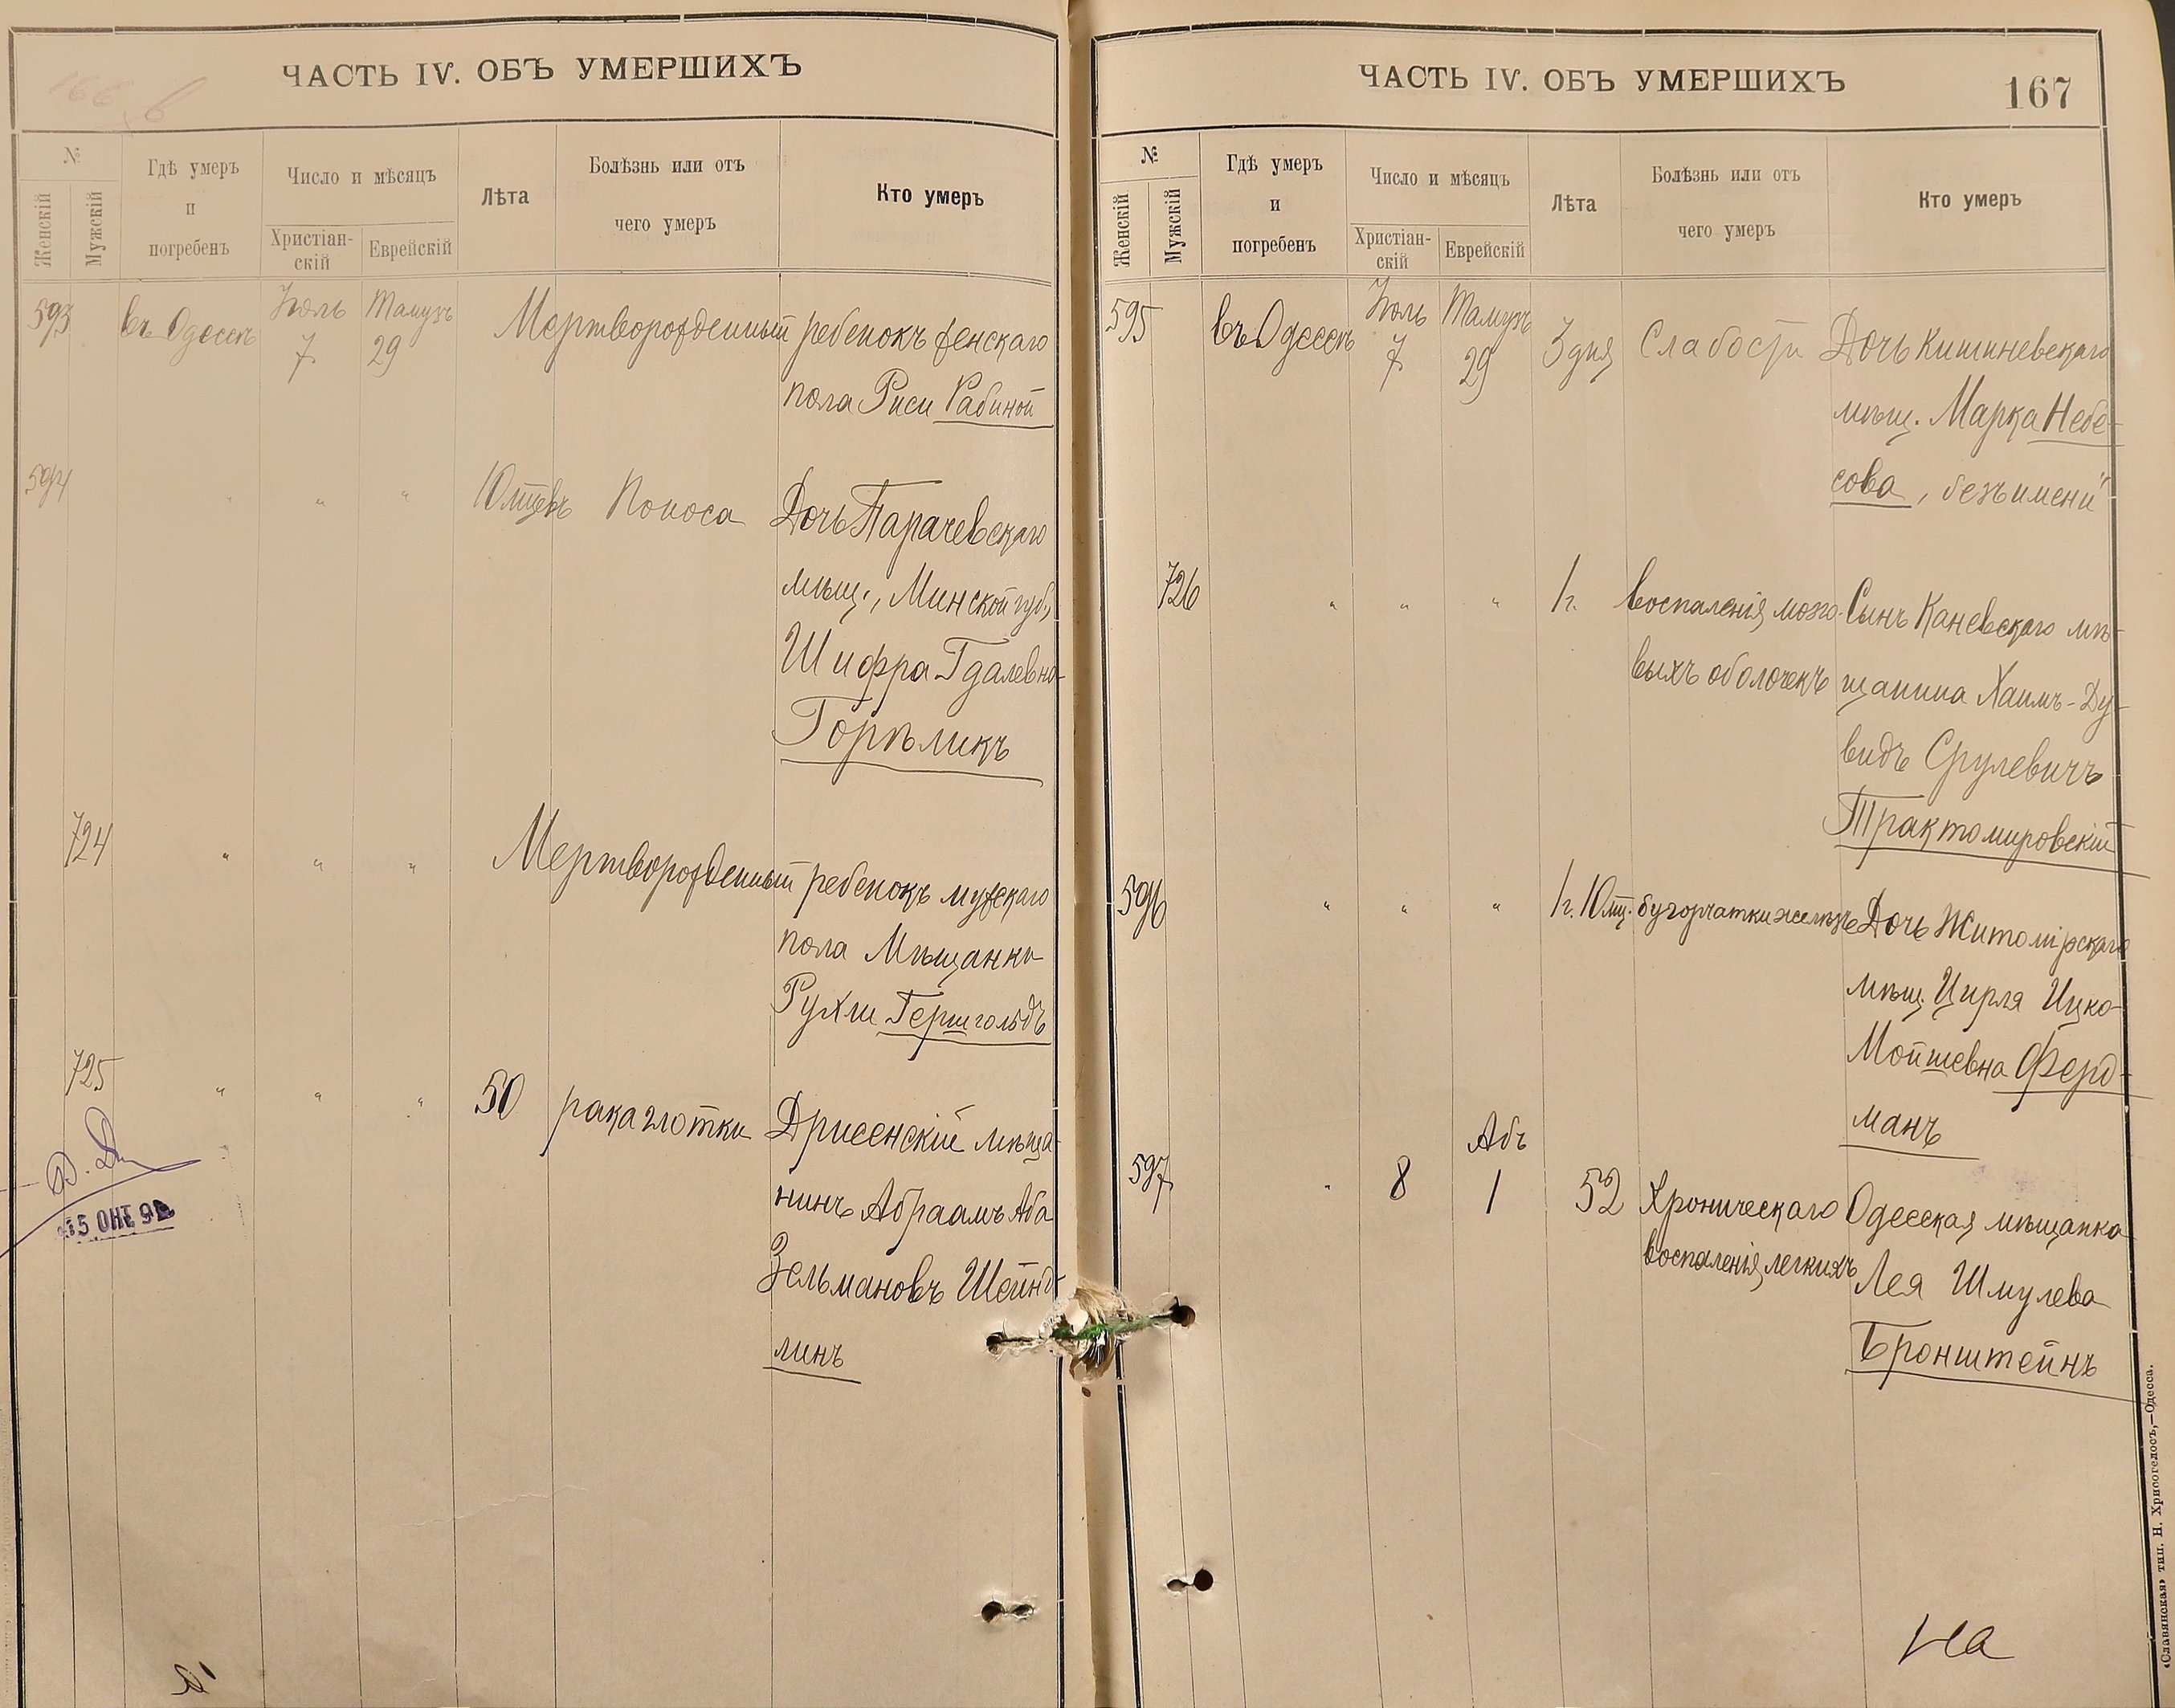 ЧАСТЬ IV. ОБЪ УМЕРШИХЪ
№
Женскій
Мужскій
Гдѣ умеръ
и
погребенъ
Число и мѣсяцъ
Христіан-
скій
Еврейскій
Лѣта
Болѣзнь или отъ
чего умеръ
Кто умеръ
593 въ Одессѣ Іюль 7 Тамузъ 29 Мертворожденный ребенокъ женскаго
пола Риси Рабиной
594 " " " 10 мцевъ Поноса Дочь Паричевскаго
мѣщ., Минской губ.,
Шифра Гдалевна
Горѣликъ
724 " " " Мертворожденный ребенокъ мужскаго
пола Мѣщанки
Рухли Гершгольдъ
725 " " " 50 рака глотки Дрисенскій мѣща-
нинъ Абраамъ Аба
Зельмановъ Шейнд-
линъ
ЧАСТЬ IV. ОБЪ УМЕРШИХЪ
167
№
Женскій
Мужскій
Гдѣ умеръ
и
погребенъ
Число и мѣсяцъ
Христіан-
скій
Еврейскій
Лѣта
Болѣзнь или отъ
чего умеръ
Кто умеръ
595 въ Одессѣ Іюль 7 Тамузъ 29 3 дня Слабости Дочь Кишиневскаго
мѣщ. Марка Небе-
сова, "безъ имени"
726 " " " 1 г. воспаленія мозго- Сынъ Каневскаго мѣ-
выхъ оболочекъ щанина Хаимъ-Ду-
видъ Срулевичъ
Трактомировскій
596 " " " 1 г. 10 мц. бугорчатки железъ Дочь Житомірскаго
мѣщ. Цирля Ицко-
Мойшевна Ферд-
манъ
597 " 8 Абъ 1 52 Хроническаго Одесская мѣщанка
воспаленія легкихъ Лея Шмулева
Бронштейнъ
на
«Славянская» тип. Н. Хрисогелосъ,—Одесса.